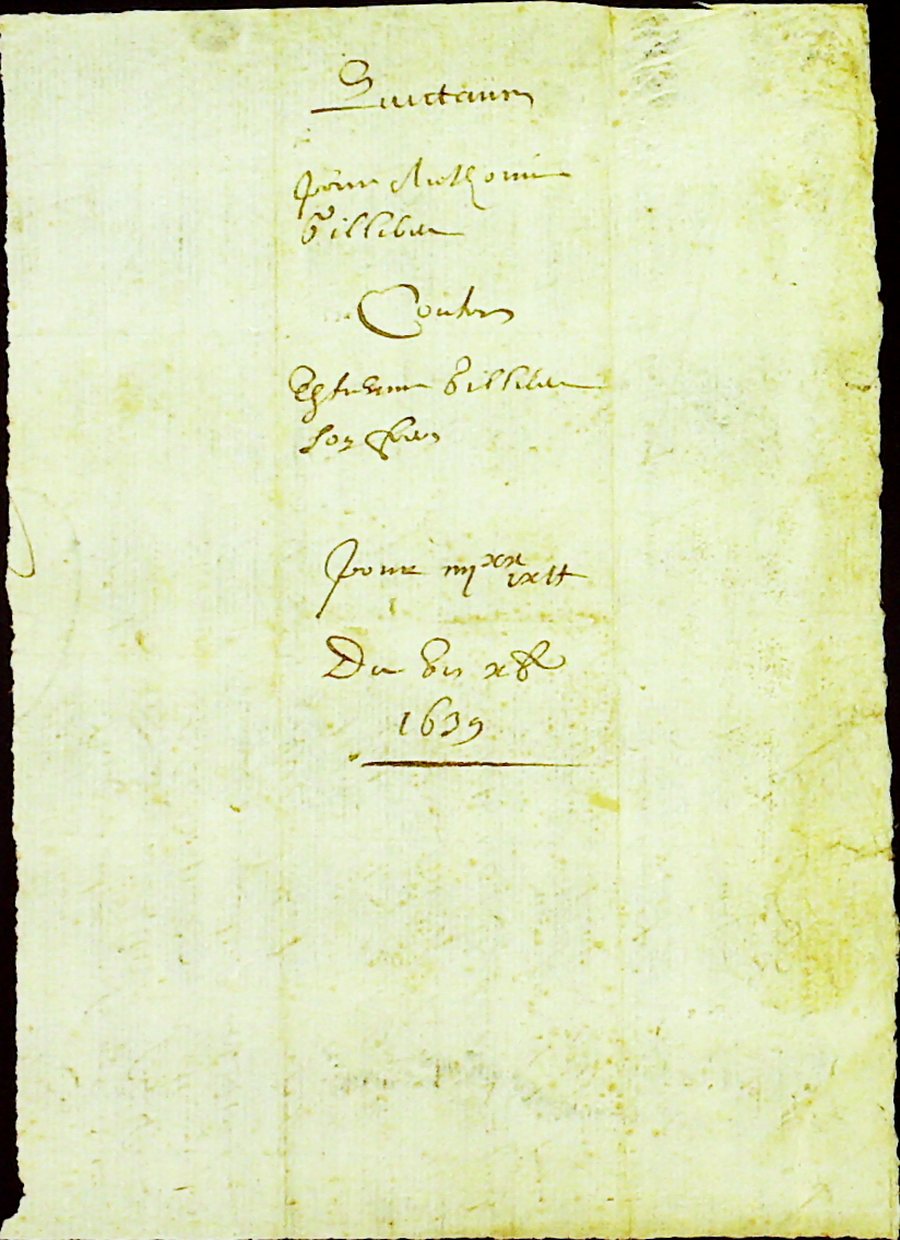 Quictance
Pour Anthoine
Billibau
Contre
Esti​enne Billibau
son frere
pour iiijxx
ixtt
Du
1639